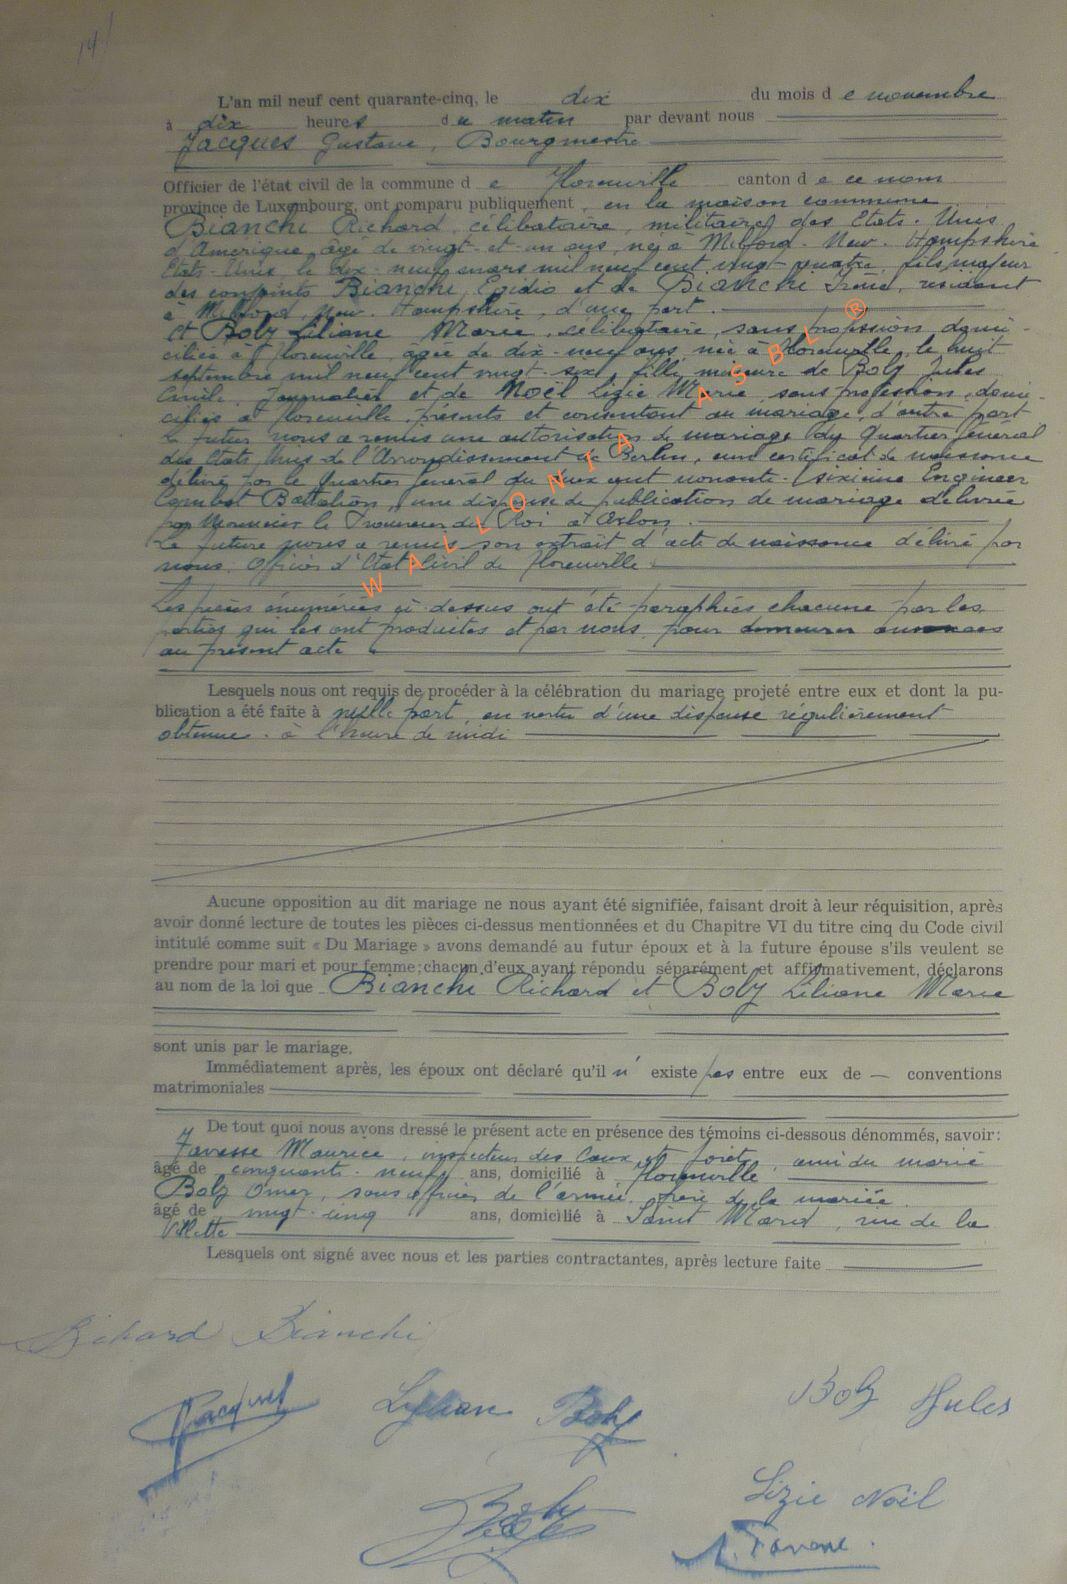 L'an mil neuf cent quarante-cinq, le dix du mois de novembre
à dix heures du matin par devant nous
Jacques Gustave, Bourgmestre
Officier de l'état civil de la commune de Florenville canton de ce nom
province de Luxembourg, ont comparu publiquement, en la maison commune
Bianchi Richard, célibataire, militaire des Etats-Unis
d'Amérique, âgé de vingt-et-un ans, né à Milford-New-Hampshire
Etats-Unis, le dix-neuf mars mil neuf cent vingt quatre, fils majeur
des conjoints Bianchi, Egidio et de Bianchi Irène, résidant
à Milford, New-Hampshire, d'une part.
et Boly Liliane Marie, célibataire, sans profession, domi-
ciliée à Florenville, âgée de dix-neuf ans, née à Florenville, le huit
septembre mil neuf cent vingt-six, fille mineure de Boly Jules
Camille, Journalier et de Noël Lizie Marie, sans profession, domi-
ciliés à Florenville, présents et consentant au mariage, d'autre part
Le futur nous a remis une autorisation de mariage du Quartier Général
des Etats Unis de l'Arrondissement de Berlin, un certificat de naissance
délivré par le Quartier Général du deux cent nonante-sixième Engineer
Combat Battalion, une dispense de publication de mariage délivrée
par Monsieur le Procureur du Roi à Arlon.
La future nous a remis son extrait d'acte de naissance délivré par
nous, Officier d'Etat Civil de Florenville
Les pièces énumérées ci-dessus ont été paraphées chacune par les
parties qui les ont produites et par nous pour demeurer annexées
au présent acte
Lesquels nous ont requis de procéder à la célébration du mariage projeté entre eux et dont la pu-
blication a été faite à nulle part, en vertu d'une dispense régulièrement
obtenue. à l'heure de midi
Aucune opposition au dit mariage ne nous ayant été signifiée, faisant droit à leur réquisition, après
avoir donné lecture de toutes les pièces ci-dessus mentionnées et du Chapitre VI du titre cinq du Code civil
intitulé comme suit « Du Mariage » avons demandé au futur époux et à la future épouse s'ils veulent se
prendre pour mari et pour femme; chacun d'eux ayant répondu séparément et affirmativement, déclarons
au nom de la loi que Bianchi Richard et Boly Liliane Marie
sont unis par le mariage.
Immédiatement après, les époux ont déclaré qu'il n'existe pas entre eux de — conventions
matrimoniales
De tout quoi nous avons dressé le présent acte en présence des témoins ci-dessous dénommés, savoir:
Maurice, inspecteur des Eaux et forêts, ami du marié
âgé de cinquante-neuf ans, domicilié à Florenville
Boly Omer, sous officier de l'armée, frère de la mariée
âgé de vingt-cinq ans, domicilié à Saint Mard, rue de la
Vilette
Lesquels ont signé avec nous et les parties contractantes, après lecture faite
Richard Bianchi
Jacques
Lylian Boly
Boly Jules
Boly
Lizie Noël
WALLONIA ASBL ®